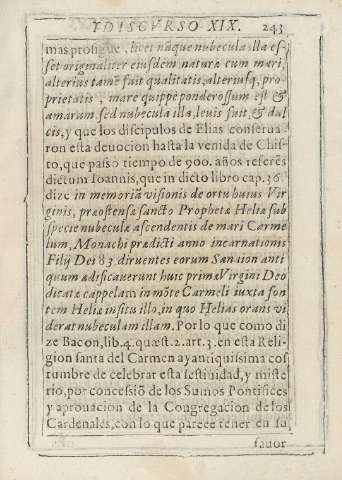 Y DISCVRSO XIX. 243
mas prosigue, licet nãque nubecula illa es-
set originaliter eiusdem naturæ cum mari,
alterius tamẽ fuit qualitatis, alteriusq; pro-
prietatis, mare quippè ponderossum est &
amarum, sed nubecula illa, leuis fuit, & dul
cis, y que los discipulos de Elias conserua-
ron esta deuocion hasta la venida de Chris-
to, que passò tiempo de 900. años referès
dictum Ioannis, que in dicto libro cap. 36.
dize in memoriã visionis de ortu huius Vir
ginis, præostensæ sancto Prophetæ Heliæ sub
specie nubeculæ ascendentis de mari Carme
lum, Monachi prædicti anno incarnationis
Filij Dei 83. diruentes eorum Sanaion anti
quum ædificauerunt huic primæ Virgini Deo
dicatæ cappelam in mõte Carmeli iuxta fon
tem Heliæ in situ illo, in quo Helias orans vi
derat nubeculam illam. Por lo que como di
ze Bacon, lib. 4. quæst. 2. art. 3. en esta Reli-
gion santa del Carmen ay antiquissima cos
tumbre de celebrar esta festiuidad, y miste
rio, por concessiõ de los Sumos Pontifices
y aprouacion de la Congregacion de los
Cardenales, con lo que parece tener en su
fauor